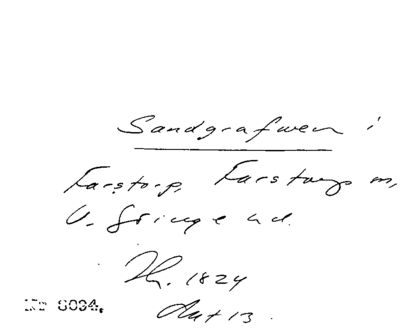 Sandgrafwen i
Farstorp, Farstorps sn,
V. Göinge hd.
Th. 1824
Akt 13.
Nr 8034.